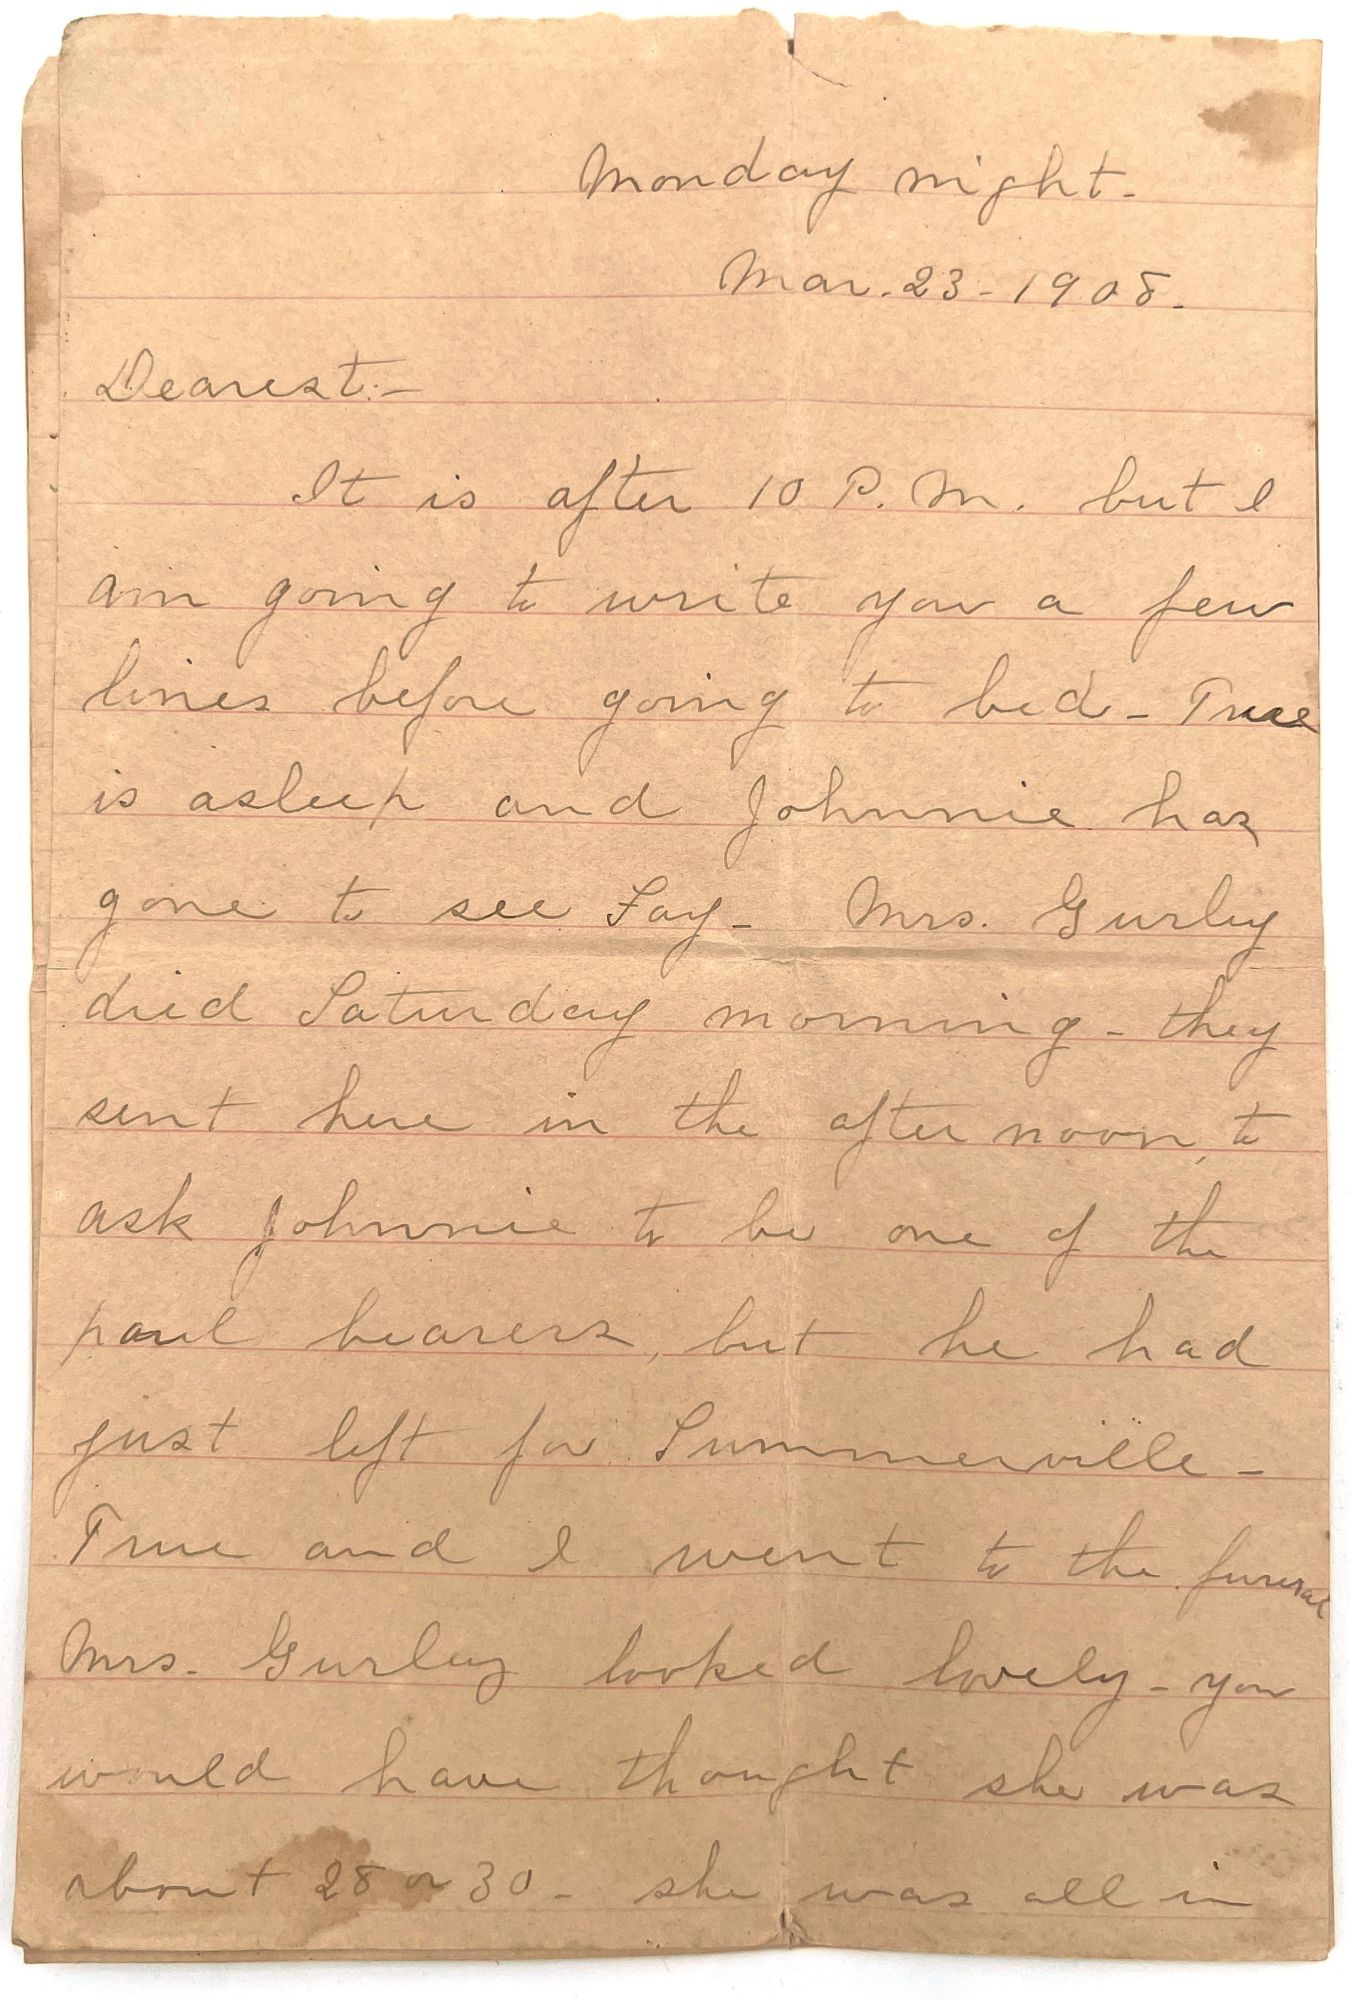 Monday night-
Mar. 23-1908-
Dearest:-
It is after 10 P. M. but I
am going to write you a few
lines before going to bed- True
is asleep and Johnnie has
gone to see Fay- Mrs. Gurley
died Saturday morning- they
sent here in the afternoon, to
ask Johnnie to be one of the
paul bearers, but he had
just left for Summerville-
True and I went to the funeral
Mrs. Gurley looked lovely- you
would have thought she was
about 28 or 30- she was all in